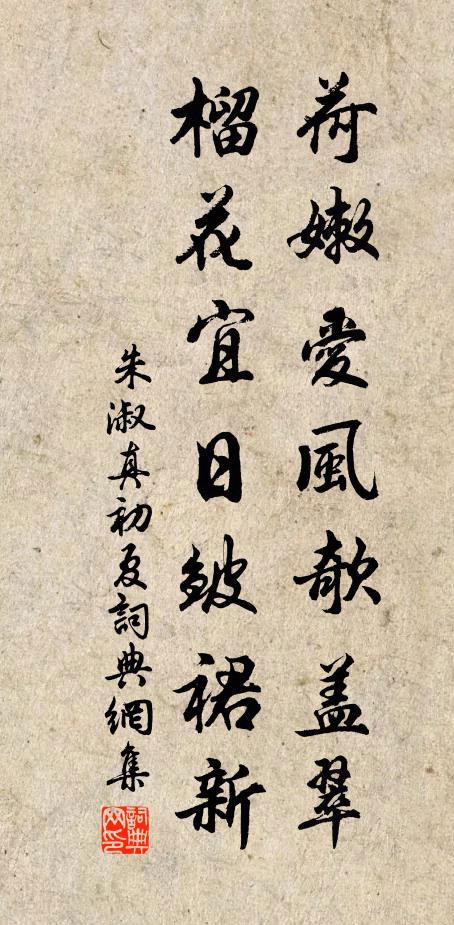 荷嫩愛風欹盖翠
榴花宜日皺裙新
朱淑真初夏詞典網集
詞典網印